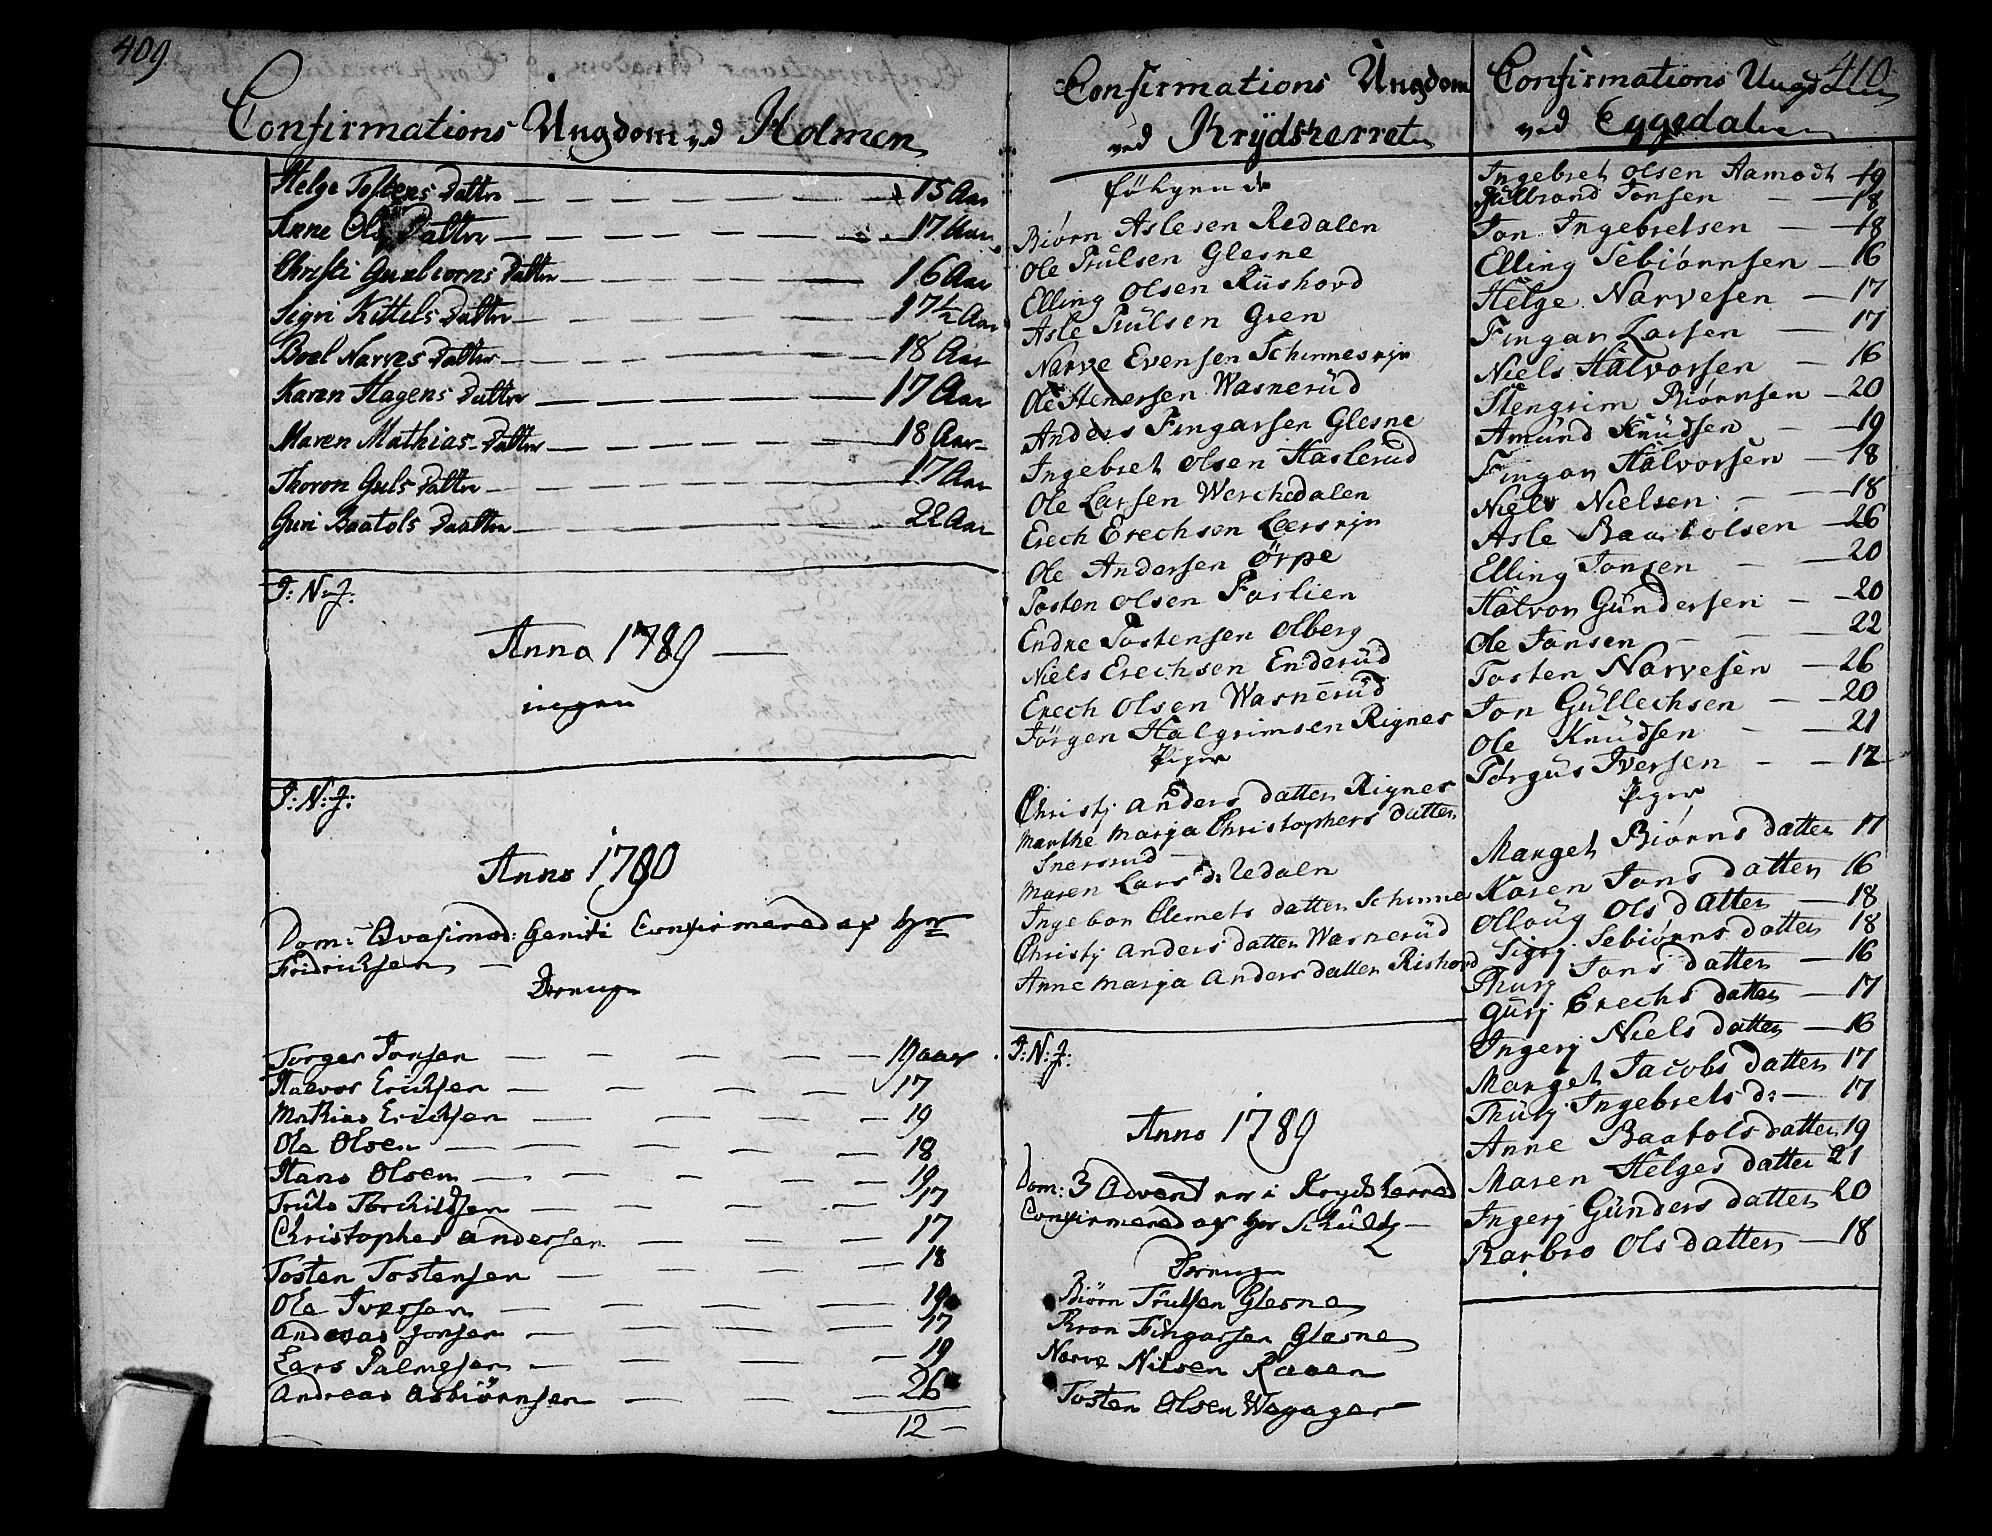 409
Confirmations Ungdom ved Holmen
Helge Tostens Dattr 15 Aar
Anne Ols Dattr 17 Aar
Christi Gunbiorns Dattr 16 Aar
Sigri Kittils Dattr 17½ Aar
Boel Narves Dattr 18 Aar
Karen Hagens Dattr 17 Aar
Maren Mathias Dattr 18 Aar
Thoron Guls Dattr 17 Aar
Guri Baatols Daatter 22 Aar
I: N: J:
Anno 1789
ingen
I: N: J:
Anno 1790
Dom: Qvasimod: Geniti Confirmered af hr
Fridrichsen
Drenge
Torger Jonsen 19 aar
Halvor Erichsen 17
Mathias Erichsen 19
Ole Olsen 18
Hans Olsen 19
Truls Torchildsen 17
Christopher Andersen 17
Tosten Tostensen 18
Ole Iversen 19
Andreas Jonsen 17
Lars Palmesen 19
Andreas Asbiörnsen 26
12
Confirmations Ungdom
ved Krydsherret
følgende
Biørn Aslesen Redalen
Ole Trulsen Glesne
Elling Olsen Rüshovd
Asle Trülsen Gren
Narve Evensen Schinnesejn
Ole Stenersen Wasnerüd
Anders Fingarsen Glesne
Ingebret Olsen Haslerüd
Ole Larsen Werchedalen
Erech Erechsen Laersejn
Ole Andersen Ørpe
Tosten Olsen Forlien
Endre Tostensen Olberg
Niels Erechsen Enderüd
Erech Olsen Wasnerüd
Jørgen Halgrimsen Rignes
Piger
Christj Anders datter Rignes
Marthe Marja Christophers datter
Snersrud
Maren Lars d: Redalen
Ingebor Clemets datter Schinnes
Christj Anders datter Wasnerüd
Anne Marja Anders datter Rishovd
I: N: J:
Anno 1789
Dom: 3 Advent er i Krydsherred
Confirmered af hr Schültz
Drenge
Biörn Trulsen Glesne
Kron Fingarsen Glesne
Narve Nilsen Raaen
Tosten Olsen Wegager
410
Confirmations Ungdom
ved Eggedalen
Ingebret Olsen Aamodt 19
Gulbrand Jonsen 18
Jon Ingebretsen 18
Elling Sebiørnsen 16
Helge Narvesen 17
Fingar Larsen 17
Niels Halvorsen 16
Stengrim Biørnsen 20
Amund Knüdsen 19
Fingar Halvorsen 18
Niels Nielsen 18
Asle Baartolsen 26
Elling Jonsen 20
Halvor Gündersen 20
Ole Jansen 22
Tosten Narvesen 26
Jon Güllechsen 20
Ole Knüdsen 21
Torgüs Iversen 17
Piger
Marget Biørns datter 17
Karen Jons datter 16
Olloug Ols datter 18
Sigrj Sebiørns datter 18
Thurj Jons datter 16
Gürj Erechs datter 17
Ingerj Niels datter 16
Marget Jacobs datter 17
Thürj Ingebrets d: 17
Anne Baatols datter 19
Maren Helges datter 21
Ingerj Günders datter 20
Barbro Ols datter 18